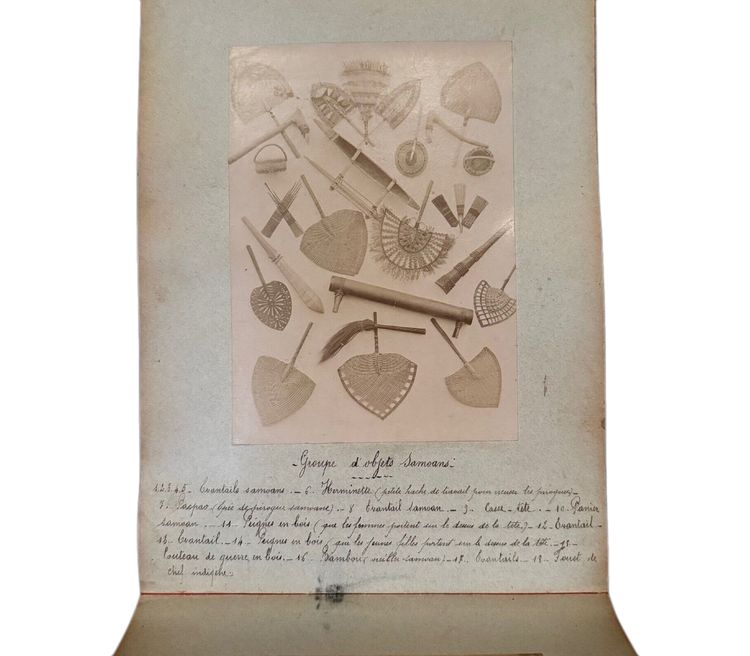 - Groupe d'objets Samoans -
1.2.3.4.5 - Evantails samoans. - 6. Herminette (petite hache de travail pour creuser les pirogues) -
7. Paopao (Copie de pirogue samoane). - 8 Evantail samoan. - 9. Casse-tête. - 10. Panier
samoan. - 11. Peignes en bois (que les femmes portent sur le dessus de la tête.) - 12. Evantail -
13. Evantail. - 14. Peignes en bois (que les jeunes filles portent sur le dessus de la tête -
Couteau de guerre, en bois. - 16. Bambou samoan) - 17. Evantails - 18. Fouet de
chef indigène.